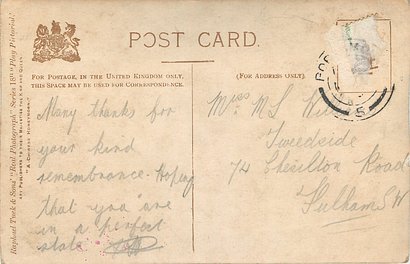 POST CARD.
FOR POSTAGE, IN THE UNITED KINGDOM ONLY,
THIS SPACE MAY BE USED FOR CORRESPONDENCE.
(FOR ADDRESS ONLY).
Raphael Tuck & Sons' "Real Photograph" Series 189 "Play Pictorial."
Many thanks for
your kind
remembrance. Hoping
that you are
in a perfect
state
Miss M S
Tweedside
74 Sherilton Road
Fulham S W